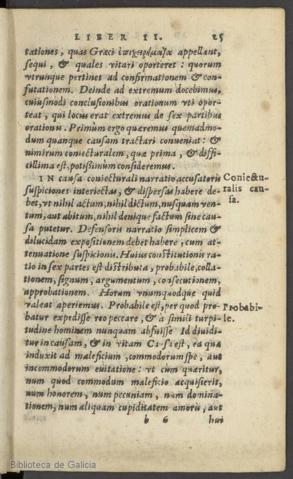 LIBER II. 25
tationes, quas Græci ἐπιχειρήματα appellant,
sequi, & quales vitari oporteret: quorum
vtrunque pertinet ad confirmationem & con-
futationem. Deinde ad extremum docebimus,
cuiusmodi conclusionibus orationum vti opor-
teat, qui locus erat extremus de sex partibus
orationū. Primùm ergo quæremus quemadmo-
dum quanque causam tractari conueniat: &
nimirum coniecturalem, quæ prima, & diffi-
cillima est, potissimùm consideremus.
IN causa coniecturali narratio accusatoris
suspiciones interiectas, & dispersas habere de-
bet, vt nihil actum, nihil dictum, nusquam ven-
tum, aut abitum, nihil denique factum sine cau-
sa putetur. Defensoris narratio simplicem &
dilucidam expositionem debet habere, cum at-
tenuatione suspicionis. Huius constitutionis ra-
tio in sex partes est distributa, probabile, colla-
tionem, signum, argumentum, cōsecutionem,
approbationem. Horum vnumquodque quid
valeat aperiemus. Probabile est, per quod pro-
batur expedisse reo peccare, & a simili turpi-
tudine hominem nunquam abfuisse. Id diuidi-
tur in causam, & in vitam. Causa est, ea quæ
induxit ad maleficium, commodorum spe, aut
incommodorum euitatione: vt cùm quæritur,
num quod commodum maleficio acquisierit,
num honorem, num pecuniam, num domina-
tionem, num aliquam cupiditatem amoris, aut
b 6 hui
Coniectu-
ralis cau-
sa.
Probabi-
le.
Biblioteca de Galicia